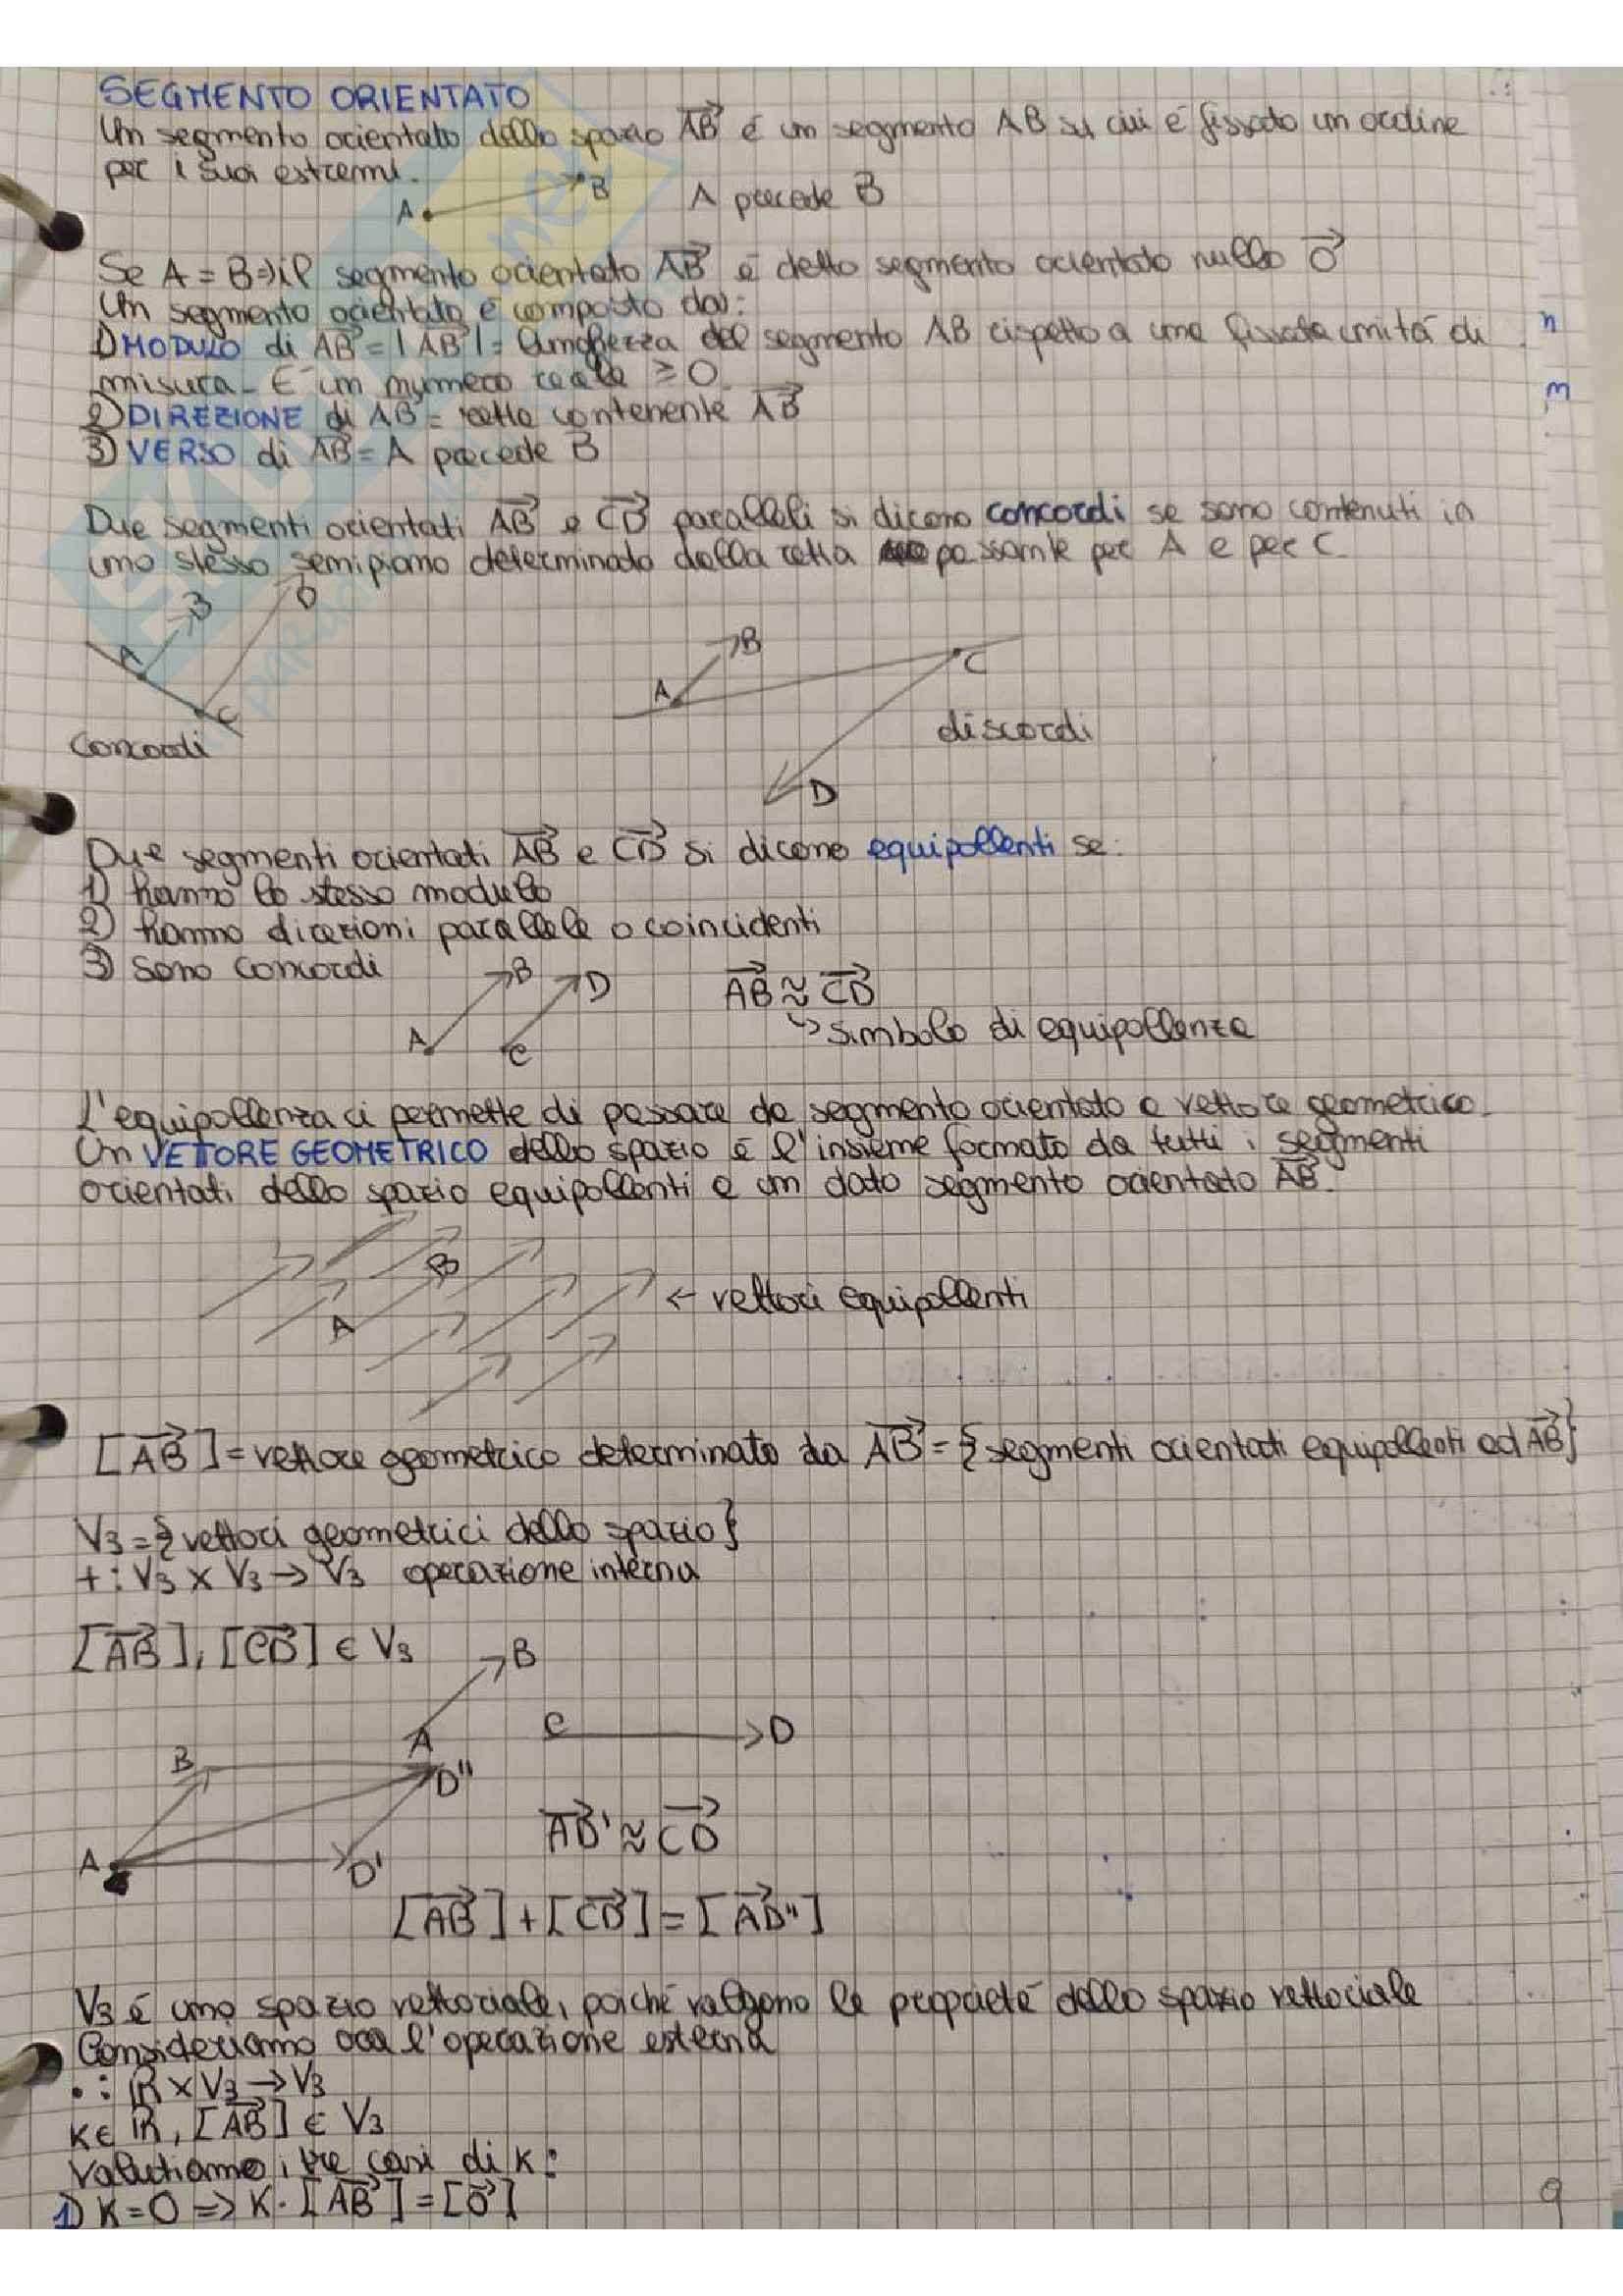 SEGMENTO ORIENTATO
Un segmento orientato dello spazio AB è un segmento AB su cui è fissato un ordine
per i suoi estremi.
A B A precede B
Se A = B => il segmento orientato AB è detto segmento orientato nullo O
Un segmento orientato è composto da:
1) MODULO di AB = |AB| = lunghezza del segmento AB rispetto a una fissata unità di
misura. È un numero reale ≥ 0.
2) DIREZIONE di AB = retta contenente AB
3) VERSO di AB = A precede B
Due segmenti orientati AB e CD paralleli si dicono concordi se sono contenuti in
uno stesso semipiano determinato dalla retta passante per A e per C.
A B C D
concordi
A B C D
discordi
Due segmenti orientati AB e CD si dicono equipollenti se:
1) hanno lo stesso modulo
2) hanno direzioni parallele o coincidenti
3) sono concordi
A B C D AB ≈ CD
↳ simbolo di equipollenza
L'equipollenza ci permette di passare da segmento orientato a vettore geometrico.
Un VETTORE GEOMETRICO dello spazio è l'insieme formato da tutti i segmenti
orientati dello spazio equipollenti a un dato segmento orientato AB.
A B ← vettori equipollenti
[AB] = vettore geometrico determinato da AB = {segmenti orientati equipollenti ad AB}
V3 = {vettori geometrici dello spazio}
+ : V3 x V3 → V3 operazione interna
[AB], [CD] ∈ V3
A B
C D
A B D' D''
AD' ≈ CD
[AB] + [CD] = [AD'']
V3 è uno spazio vettoriale, poiché valgono le proprietà dello spazio vettoriale
Consideriamo ora l'operazione esterna
• : ℝ x V3 → V3
K ∈ ℝ, [AB] ∈ V3
Valutiamo i tre casi di K:
1) K = 0 => K · [AB] = [O]
9